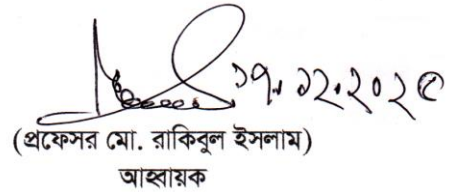 ১৭.১২.২০২৫
(প্রফেসর মো. রাকিবুল ইসলাম)
আহ্বায়ক